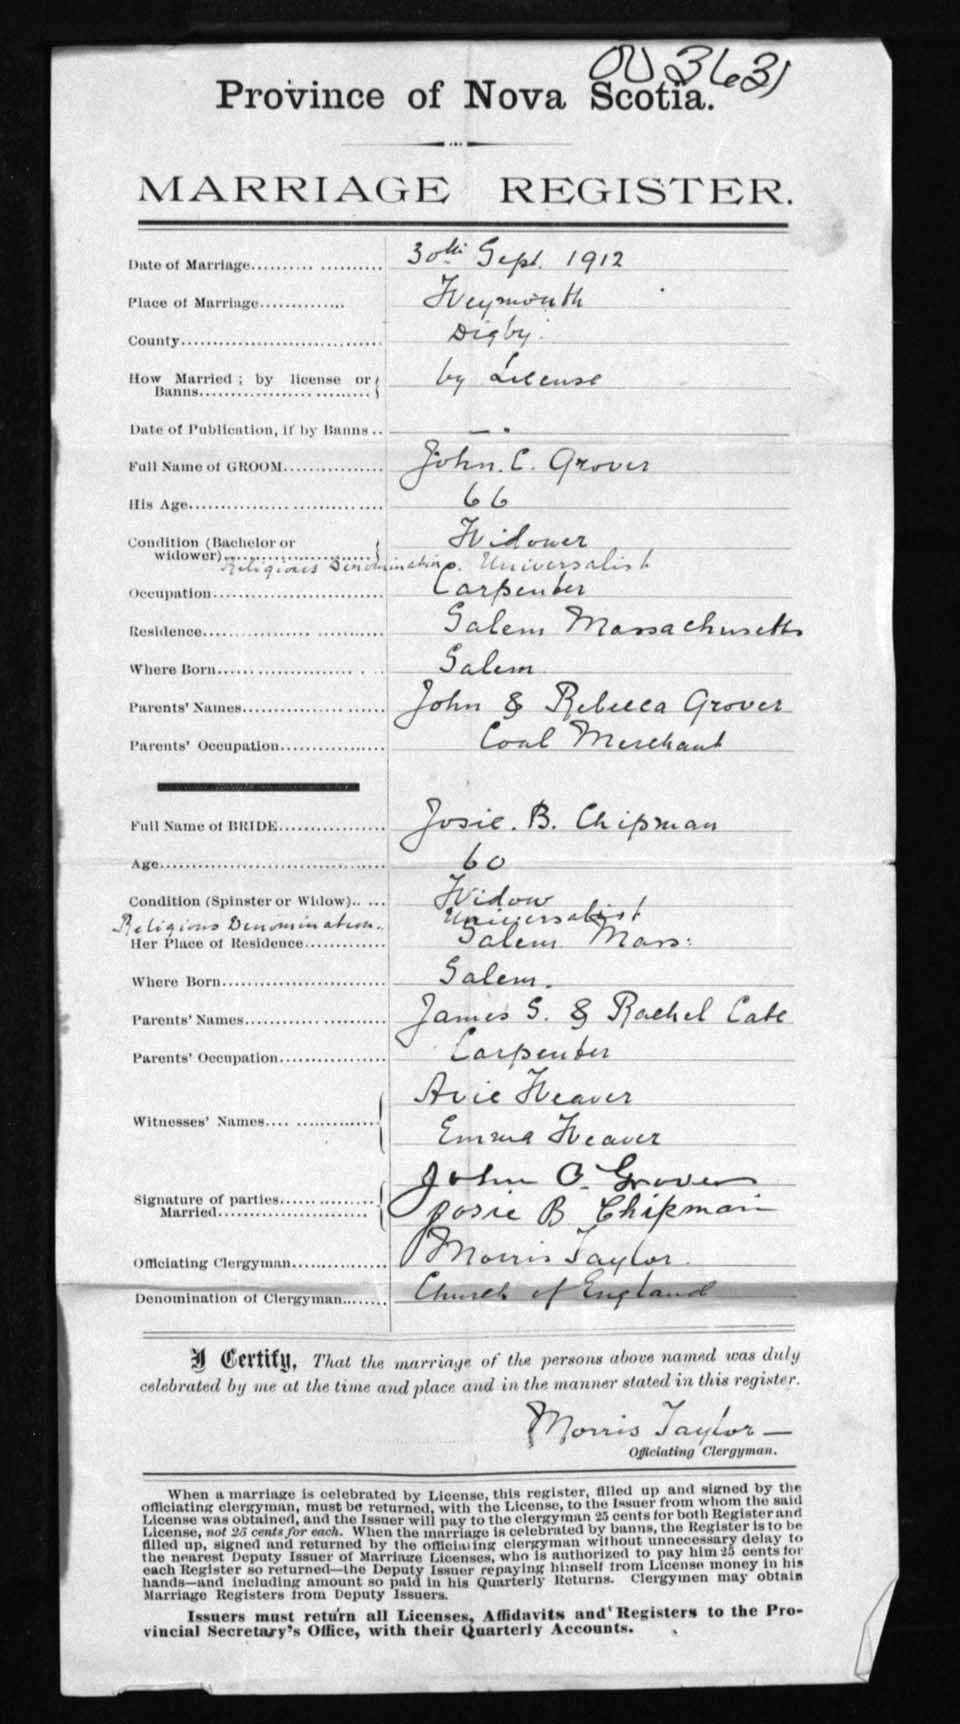 003631
Province of Nova Scotia.
MARRIAGE REGISTER.
Date of Marriage.......... ........... 30th Sept. 1912
Place of Marriage............. Weymouth
County................................ Digby.
How Married ; by license or by License
Banns.....................................
Date of Publication, if by Banns .. — .
Full Name of GROOM................ John. C. Grover
His Age............................... 66
Condition (Bachelor or Widower
widower)...........................
Religious Denomination. Universalist
Occupation............................ Carpenter
Residence.................. ........... Salem Massachusetts
Where Born........................ . ... Salem
Parents' Names....................... John & Rebecca Grover
Parents' Occupation................. Coal Merchant
Full Name of BRIDE.................. Josie. B. Chipman
Age..................................... 60
Condition (Spinster or Widow).. .... Widow
Religious Denomination.. Universalist
Her Place of Residence............. Salem Mass:
Where Born........................... Salem.
Parents' Names....................... James S. & Rachel Cate
Parents' Occupation................. Carpenter
Avie Weaver
Witnesses' Names.... ...............
Emma Weaver
John C. Grover
Signature of parties................
Married........................... Josie B Chipman
Officiating Clergyman................ Morris Taylor.
Denomination of Clergyman........ Church of England
I Certify, That the marriage of the persons above named was duly
celebrated by me at the time and place and in the manner stated in this register.
Morris Taylor —
Officiating Clergyman.
When a marriage is celebrated by License, this register, filled up and signed by the
officiating clergyman, must be returned, with the License, to the Issuer from whom the said
License was obtained, and the Issuer will pay to the clergyman 25 cents for both Register and
License, not 25 cents for each. When the marriage is celebrated by banns, the Register is to be
filled up, signed and returned by the officiating clergyman without unnecessary delay to
the nearest Deputy Issuer of Marriage Licenses, who is authorized to pay him 25 cents for
each Register so returned—the Deputy Issuer repaying himself from License money in his
hands—and including amount so paid in his Quarterly Returns. Clergymen may obtain
Marriage Registers from Deputy Issuers.
Issuers must return all Licenses, Affidavits and Registers to the Pro-
vincial Secretary's Office, with their Quarterly Accounts.